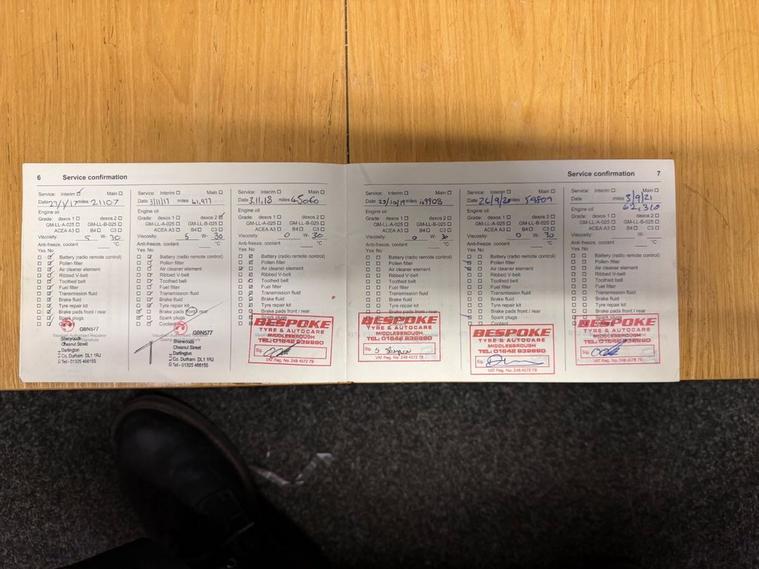 6 Service confirmation
Service: Interim ☑ Main ☐
Date miles 21107
Engine oil
Grade: dexos 1 ☐ dexos 2 ☐
GM-LL-A-025 ☐ GM-LL-B-025 ☐
ACEA A3 ☐ B4 ☐ C3 ☐
Viscosity 5 W- 30
Anti-freeze, coolant °C
Yes No
Battery (radio remote control)
Pollen filter
Air cleaner element
Ribbed V-belt
Toothed belt
Fuel filter
Transmission fluid
Brake fluid
Tyre repair kit
Brake pads front / rear
Spark plugs
GBN577
Sherwoods
Chesnut Street
Darlington
Co. Durham DL1 1RJ
Tel - 01325 466155
Service: Interim ☐ Main ☐
Date 3/11/17 miles 41,977
Engine oil
Grade: dexos 1 ☐ dexos 2
GM-LL-A-025 ☐ GM-LL-B-025 ☐
ACEA A3 ☐ B4 ☐ C3 ☐
Viscosity 5 W- 30
Anti-freeze, coolant °C
Yes No
Battery (radio remote control)
Pollen filter
Air cleaner element
Ribbed V-belt
Toothed belt
Fuel filter
Transmission fluid
Brake fluid
Tyre repair kit
Brake pads front / rear
Spark plugs
GBN577
Sherwoods
Chesnut Street
Darlington
Co. Durham DL1 1RJ
Tel - 01325 466155
Service: Interim ☐ Main ☐
Date 3.11.18 miles 45060
Engine oil
Grade: dexos 1 ☐ dexos 2 ☐
GM-LL-A-025 ☐ GM-LL-B-025 ☐
ACEA A3 ☐ B4 ☐ C3 ☐
Viscosity 0 W- 30
Anti-freeze, coolant °C
Yes No
Battery (radio remote control)
Pollen filter
Air cleaner element
Ribbed V-belt
Toothed belt
Fuel filter
Transmission fluid
Brake fluid
Tyre repair kit
Brake pads front / rear
BESPOKE
TYRE & AUTOCARE
MIDDLESBROUGH
TEL: 01642 838880
Sig
VAT Reg. No. 248 4172 79
Service confirmation 7
Service: Interim ☐ Main ☐
Date miles 49908
Engine oil
Grade: dexos 1 ☐ dexos 2 ☐
GM-LL-A-025 ☐ GM-LL-B-025 ☐
ACEA A3 ☐ B4 ☐ C3 ☐
Viscosity 0 W- 30
Anti-freeze, coolant °C
Yes No
Battery (radio remote control)
Pollen filter
Air cleaner element
Ribbed V-belt
Toothed belt
Fuel filter
Transmission fluid
Brake fluid
Tyre repair kit
Brake pads front / rear
BESPOKE
TYRE & AUTOCARE
MIDDLESBROUGH
TEL: 01642 838880
Sig
VAT Reg. No. 248 4172 79
Service: Interim ☐ Main ☐
Date 26/9/20 miles
Engine oil
Grade: dexos 1 ☐ dexos 2 ☐
GM-LL-A-025 ☐ GM-LL-B-025 ☐
ACEA A3 ☐ B4 ☐ C3 ☐
Viscosity 0 W- 30
Anti-freeze, coolant °C
Yes No
Battery (radio remote control)
Pollen filter
Air cleaner element
Ribbed V-belt
Toothed belt
Fuel filter
Transmission fluid
Brake fluid
Tyre repair kit
Brake pads front / rear
Spark plugs
Coolant
BESPOKE
TYRE & AUTOCARE
MIDDLESBROUGH
TEL: 01642 838880
Sig
VAT Reg. No. 248 4172 79
Service: Interim ☐ Main ☐
Date miles 3/9/21
62,310
Engine oil
Grade: dexos 1 ☐ dexos 2 ☐
GM-LL-A-025 ☐ GM-LL-B-025 ☐
ACEA A3 ☐ B4 ☐ C3 ☐
Viscosity 0 W- 30
Anti-freeze, coolant °C
Yes No
Battery (radio remote control)
Pollen filter
Air cleaner element
Ribbed V-belt
Toothed belt
Fuel filter
Transmission fluid
Brake fluid
Tyre repair kit
Brake pads front / rear
BESPOKE
TYRE & AUTOCARE
MIDDLESBROUGH
TEL: 01642 838880
Sig
VAT Reg. No. 248 4172 79